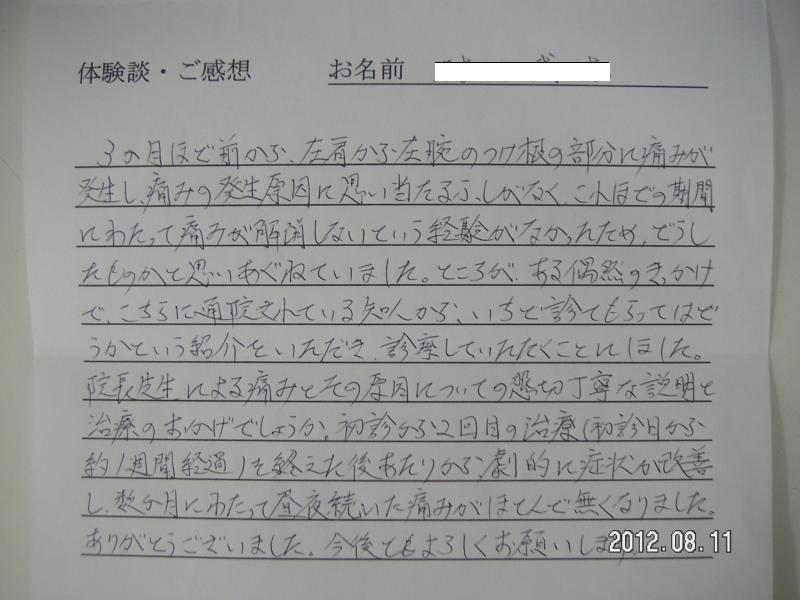 体験談・ご感想 お名前
3か月ほど前から、左肩から左腕のつけ根の部分に痛みが
発生し、痛みの発生原因に思い当たるふしがなく、これほどの期間
にわたって痛みが解消しないという経験がなかったため、どうし
たものかと思いあぐねていました。ところが、ある偶然のきっかけ
で、こちらに通院されている知人から、いちど診てもらってはど
うかという紹介をいただき、診察していただくことにしました。
院長先生による痛みとその原因についての懇切丁寧な説明と
治療のおかげでしょうか。初診から2回目の治療(初診日から
約1週間経過)を終えた後あたりから、劇的に症状が改善
し、数か月にわたって昼夜続いた痛みがほとんど無くなりました。
ありがとうございました。今後ともよろしくお願いします。
2012.08.11